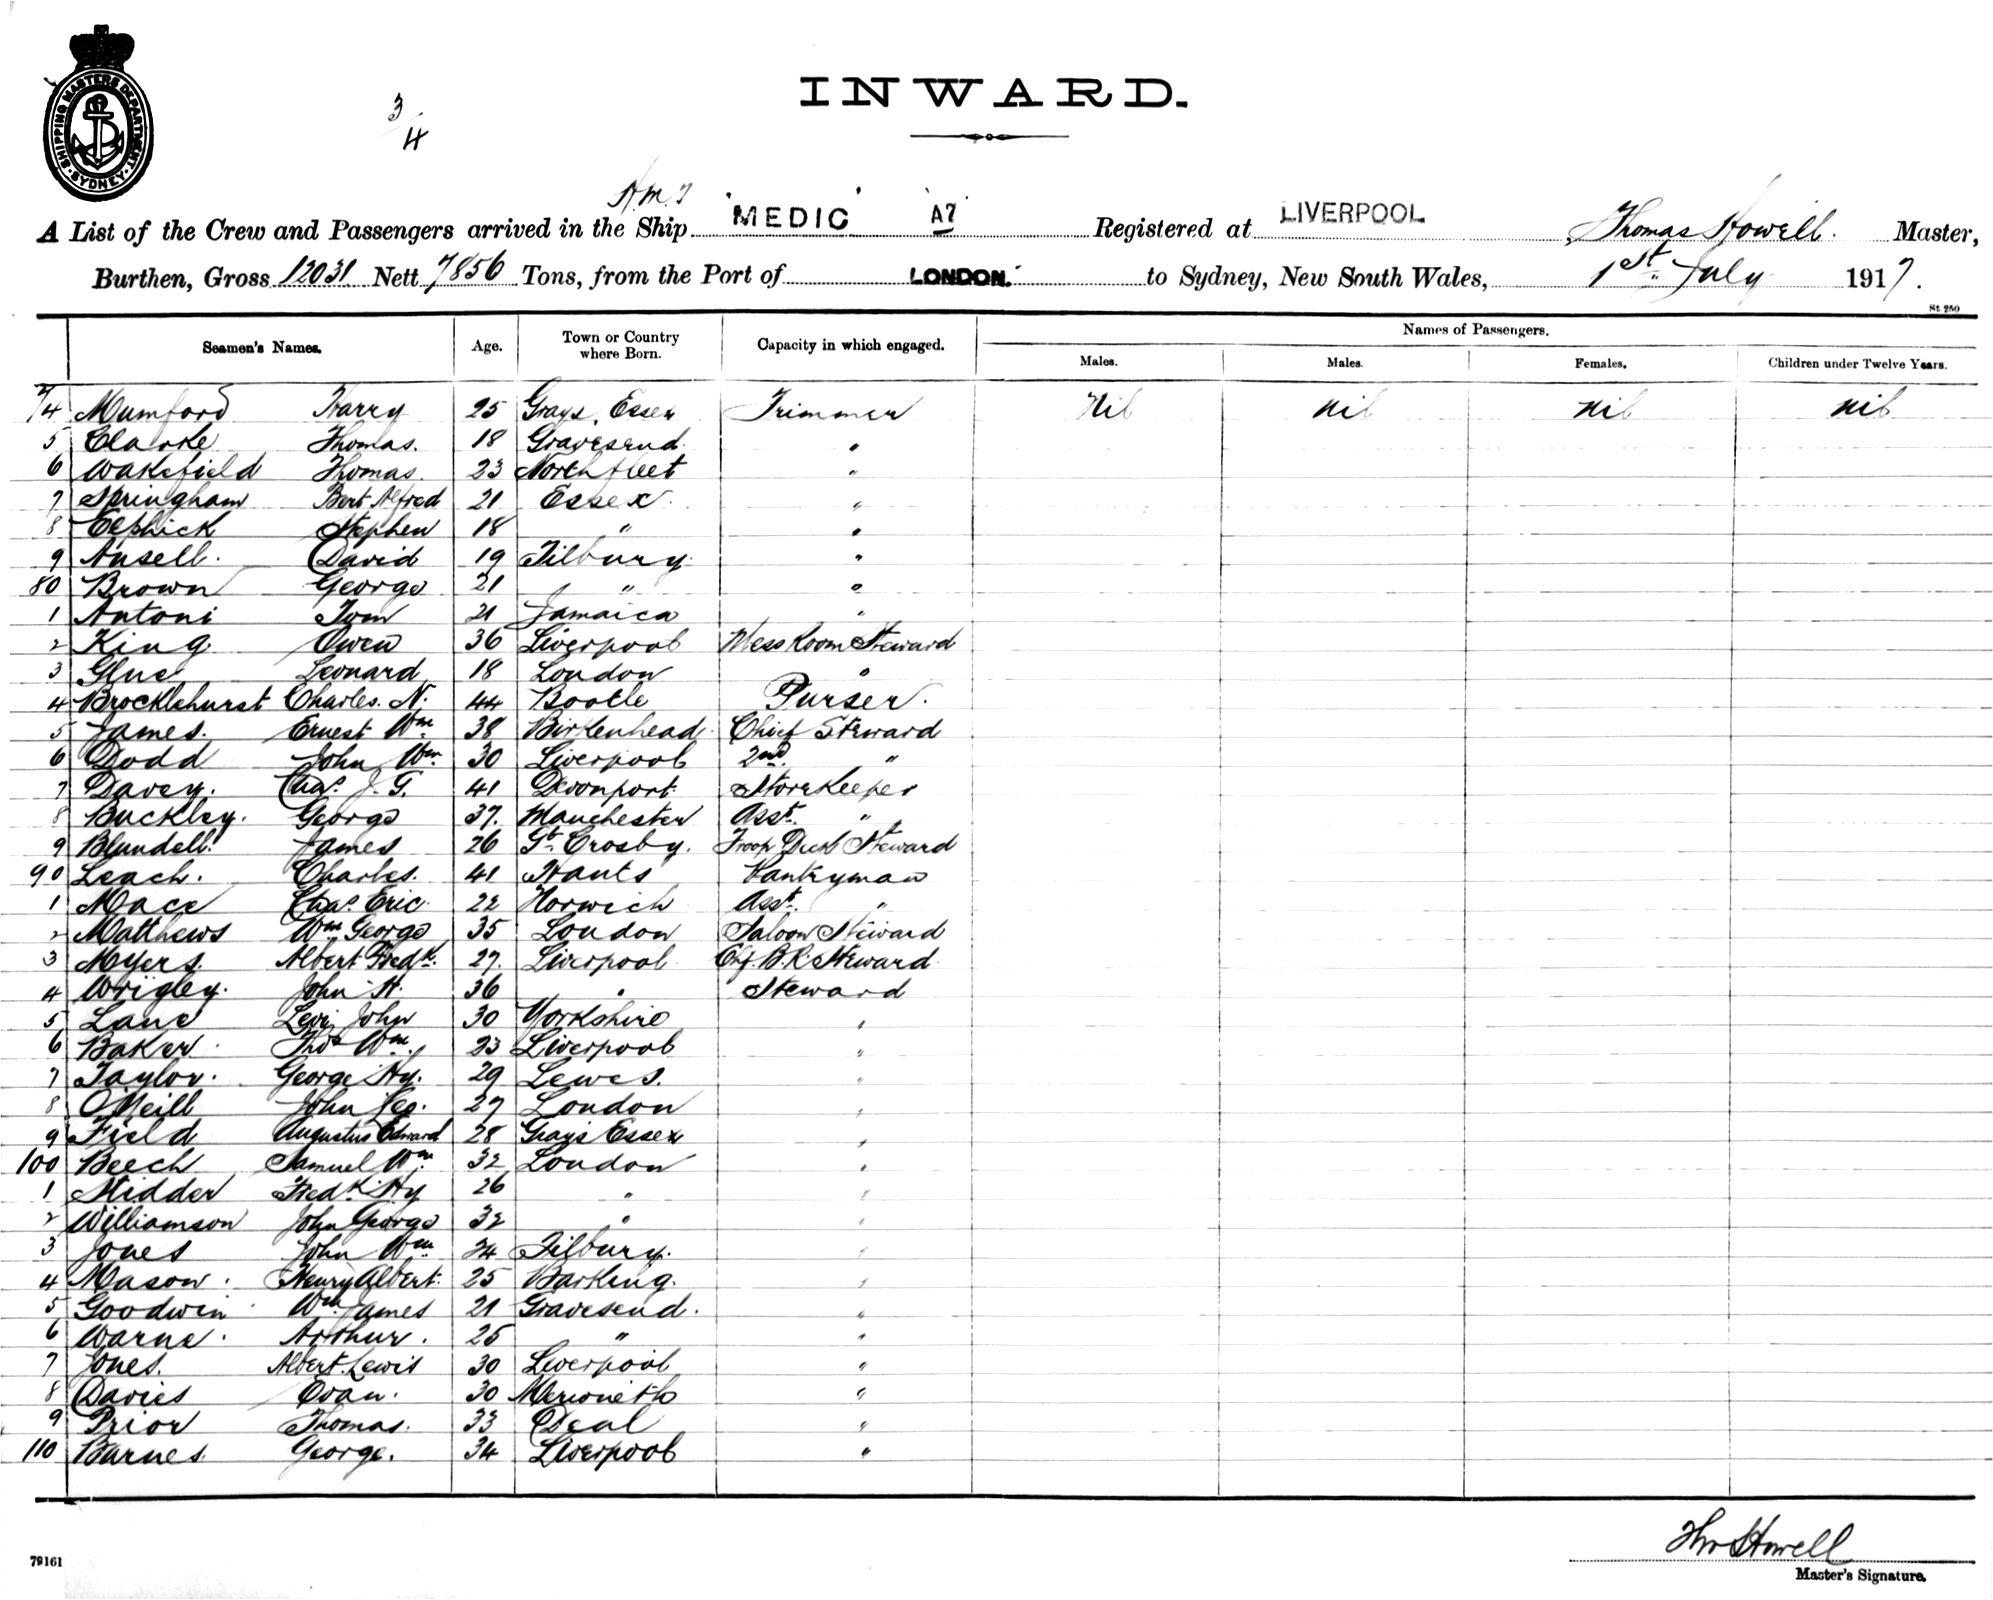 SHIPPING MASTERS DEPARTMENT · SYDNEY ·
3/4
INWARD.
H.M.T
A List of the Crew and Passengers arrived in the Ship "MEDIC" A7 Registered at LIVERPOOL, Thomas Howell. Master,
Burthen, Gross 12031 Nett 7856 Tons, from the Port of LONDON. to Sydney, New South Wales, 1st July 1917.
St. 250
Seamen's Names. Age. Town or Country where Born. Capacity in which engaged. Names of Passengers.
Males. Males. Females. Children under Twelve Years.
74 Mumford Harry 25 Grays, Essex Trimmer Nil Nil Nil Nil
5 Clarke Thomas. 18 Gravesend "
6 Wakefield Thomas. 23 Northfleet "
7 Springham Bert Alfred 21 Essex. "
8 Elphick Stephen 18 " "
9 Ansell. David 19 Tilbury. "
80 Brown George 21 " "
1 Antoni Tom 21 Jamaica "
2 King. Owen 36 Liverpool Mess Room Steward
3 Glue Leonard 18 London "
4 Brocklehurst Charles. N. 44 Bootle Purser.
5 James. Ernest Wm 38 Birkenhead. Chief Steward
6 Dodd John Wm. 30 Liverpool 2nd "
7 Davey. Chas. J. G. 41 Devonport. Storekeeper
8 Buckley. George 37. Manchester Asst. "
9 Blundell. James 26 Gt. Crosby. Troop Deck Steward
90 Leach. Charles. 41 Hants Pantryman
1 Mace Chas. Eric. 22 Norwich Asst. "
2 Matthews Wm George 35 London Saloon Steward
3 Myers. Albert Fredk. 27. Liverpool Chf. B.R. Steward.
4 Wrigley. John H. 36 " Steward
5 Lane Levi John 30 Yorkshire "
6 Baker. Thos Wm. 23 Liverpool "
7 Taylor. George Hy. 29 Lewes. "
8 O'Neill John Leo. 27 London "
9 Field Augustus Edward 28 Grays Essex "
100 Beech Samuel Wm. 32 London "
1 Stidder Fredk Hy 26 " "
2 Williamson John George 32 " "
3 Jones John Wm 24 Tilbury. "
4 Mason. Henry Albert. 25 Barking. "
5 Goodwin Wm James 21 Gravesend. "
6 Warne. Arthur. 25 " "
7 Jones. Albert. Lewis 30 Liverpool "
8 Davies Evan. 30 Merioneth "
9 Prior Thomas. 33 Deal "
110 Barnes. George. 34 Liverpool "
Thos Howell
79161 Master's Signature.